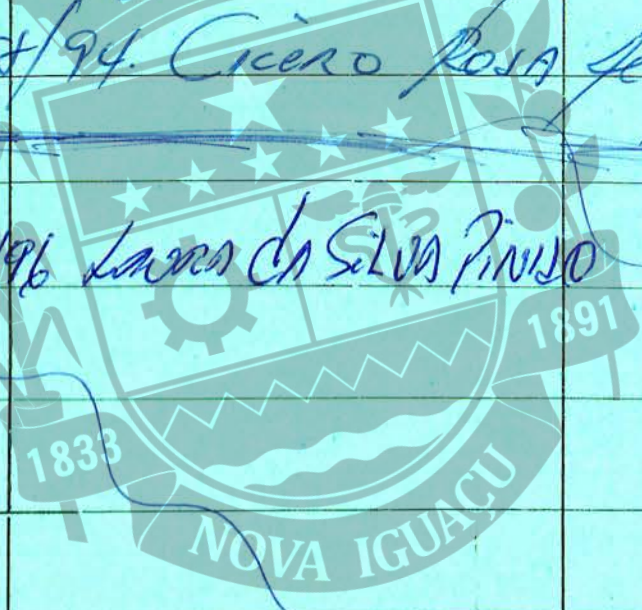 /94. Cicero Rosa
96 da Silva Pinino
1891
1833
NOVA IGUAÇU